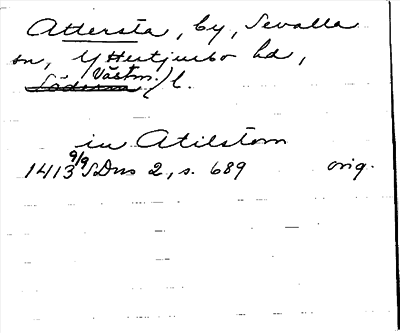 Attersta, by, Sevalla
sn, Yttertjurbo hd,
Västm. l.
in Atilstom
1413 9/9 SDns 2, s. 689 orig.